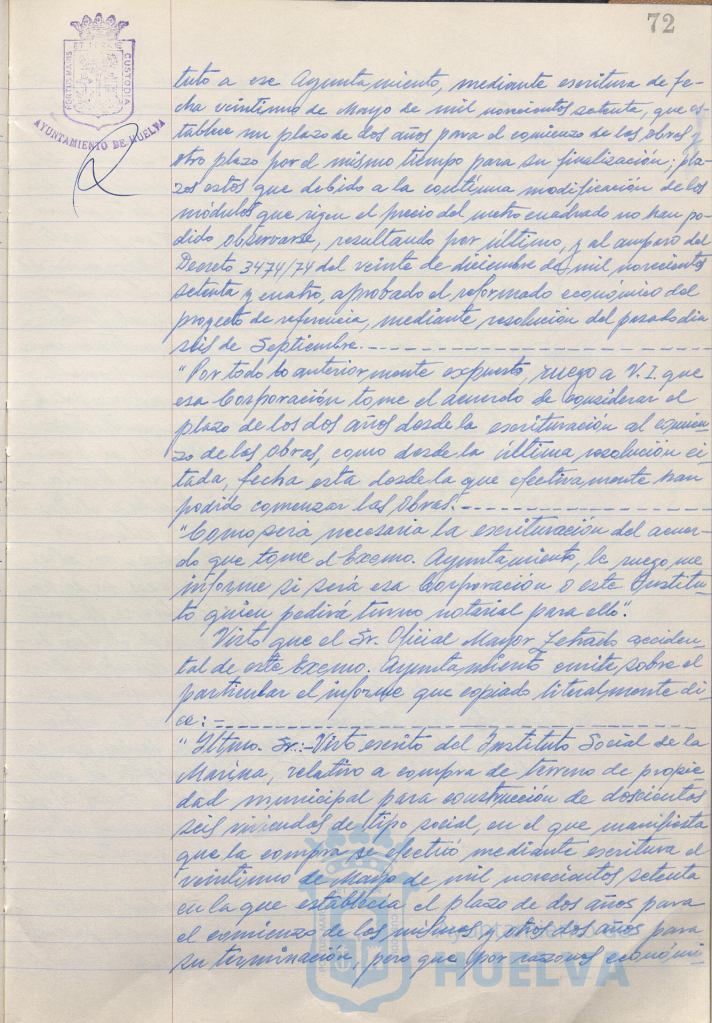 72
PORTUS MARIS
ET TERRAE
CUSTODIA
AYUNTAMIENTO DE HUELVA
tuto a ese Ayuntamiento, mediante escritura de fe-
cha veintiuno de Mayo de mil novecientos setenta, que es-
tablece un plazo de dos años para el comienzo de las obras y
otro plazo por el mismo tiempo para su finalización; pla-
zos estos que debido a la contínua modificación de los
módulos que rigen el precio del metro cuadrado no han po-
dido observarse, resultando por último, y al amparo del
Decreto 3474/74 del veinte de diciembre de mil novecientos
setenta y cuatro, aprobado el reformado económico del
proyecto de referencia, mediante resolución del pasado dia
seis de Septiembre.-----
"Por todo lo anteriormente expuesto, ruego a V.I. que
esa Corporación tome el acuerdo de considerar el
plazo de los dos años desde la escrituración al comien-
zo de las obras, como desde la última resolución ci-
tada, fecha esta desde la que efectivamente han
podido comenzar las obras.-----
"Como será necesaria la escrituración del acuer-
do que tome el Excmo. Ayuntamiento, le ruego me
informe si será esa Corporación o este Institu-
to quien pedirá turno notarial para ello".
Visto que el Sr. Oficial Mayor Letrado acciden-
tal de este Excmo. Ayuntamiento emite sobre el
particular el informe que copiado literalmente di-
ce:-----
"Iltmo. Sr.:-Visto escrito del Instituto Social de la
Marina, relativo a compra de terreno de propie-
dad municipal para construcción de doscientos
seis viviendas de tipo social, en el que manifiesta
que la compra se efectuó mediante escritura el
veintiuno de Mayo de mil novecientos setenta
en la que establecía el plazo de dos años para
el comienzo de los mismos y otros dos años para
su terminación, pero que por razones económi-
Ayuntamiento de
HUELVA